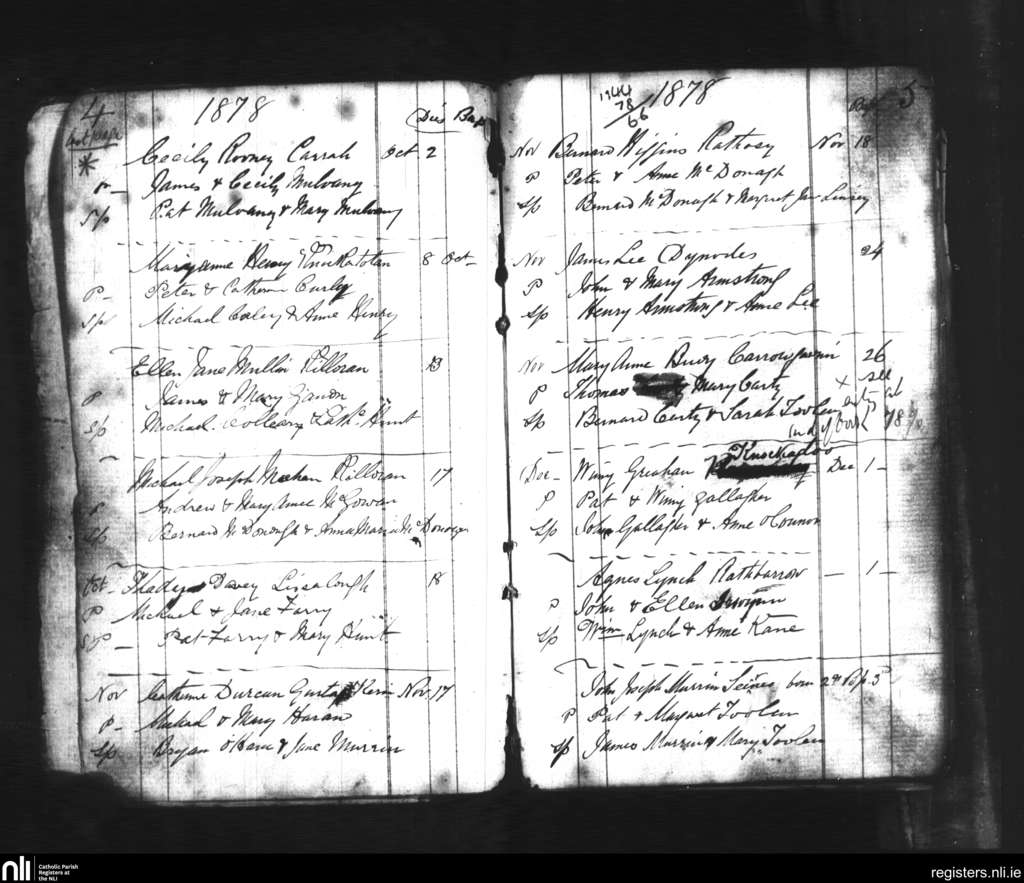 4
1878
Die Bap
*
Cecily Rooney Carrah Oct 2
P James & Cecily Mulvany
Sp Pat Mulvany & Mary Mulvany
Maryanne Henry Knockatotan 8 Oct
P Peter & Catherine Curley
Sp Michael Coley & Anne Henry
Ellen Jane Mullin Killoran 13
P James & Mary
Sp Michael Colleary & Cath. Hunt
Michael Joseph Meehan Killoran 17
P Andrew & Mary Anne McGowan
Sp Bernard McDonagh & Anna Maria McDonagh
Oct Thady Davey Lissalough 18
P Michael & Jane Farry
Sp Pat Farry & Mary Hunt
Nov Catherine Durcan Nov 17
P Michael & Mary Haran
Sp Bryan O'Hara & Jane Murrin
1944
78
66
1878
Bap
5
Nov Bernard Wiffins Rathosey Nov 18
P Peter & Anne McDonagh
Sp Bernard McDonagh & Margaret Jane
Nov James Lee Doynodes 24
P John & Mary Armstrong
Sp Henry Armstrong & Anne Lee
Nov Mary Anne 26
P Thomas & Mary Carty
x see
Sp Bernard Carty & Sarah Toolan entry at
end of book 78
Knockadoo
Dec Winy Greahan Dec 1
P Pat & Winy Gallagher
Sp John Gallagher & Anne O'Connor
Agnes Lynch Rathbarrow 1
P John & Ellen
Sp Wim Lynch & Anne Kane
John Joseph Murrin born 2nd Bap 5
P Pat & Margaret Toolan
Sp James Murrin & Mary Toolan
nli
Catholic Parish
Registers at
the NLI
registers.nli.ie